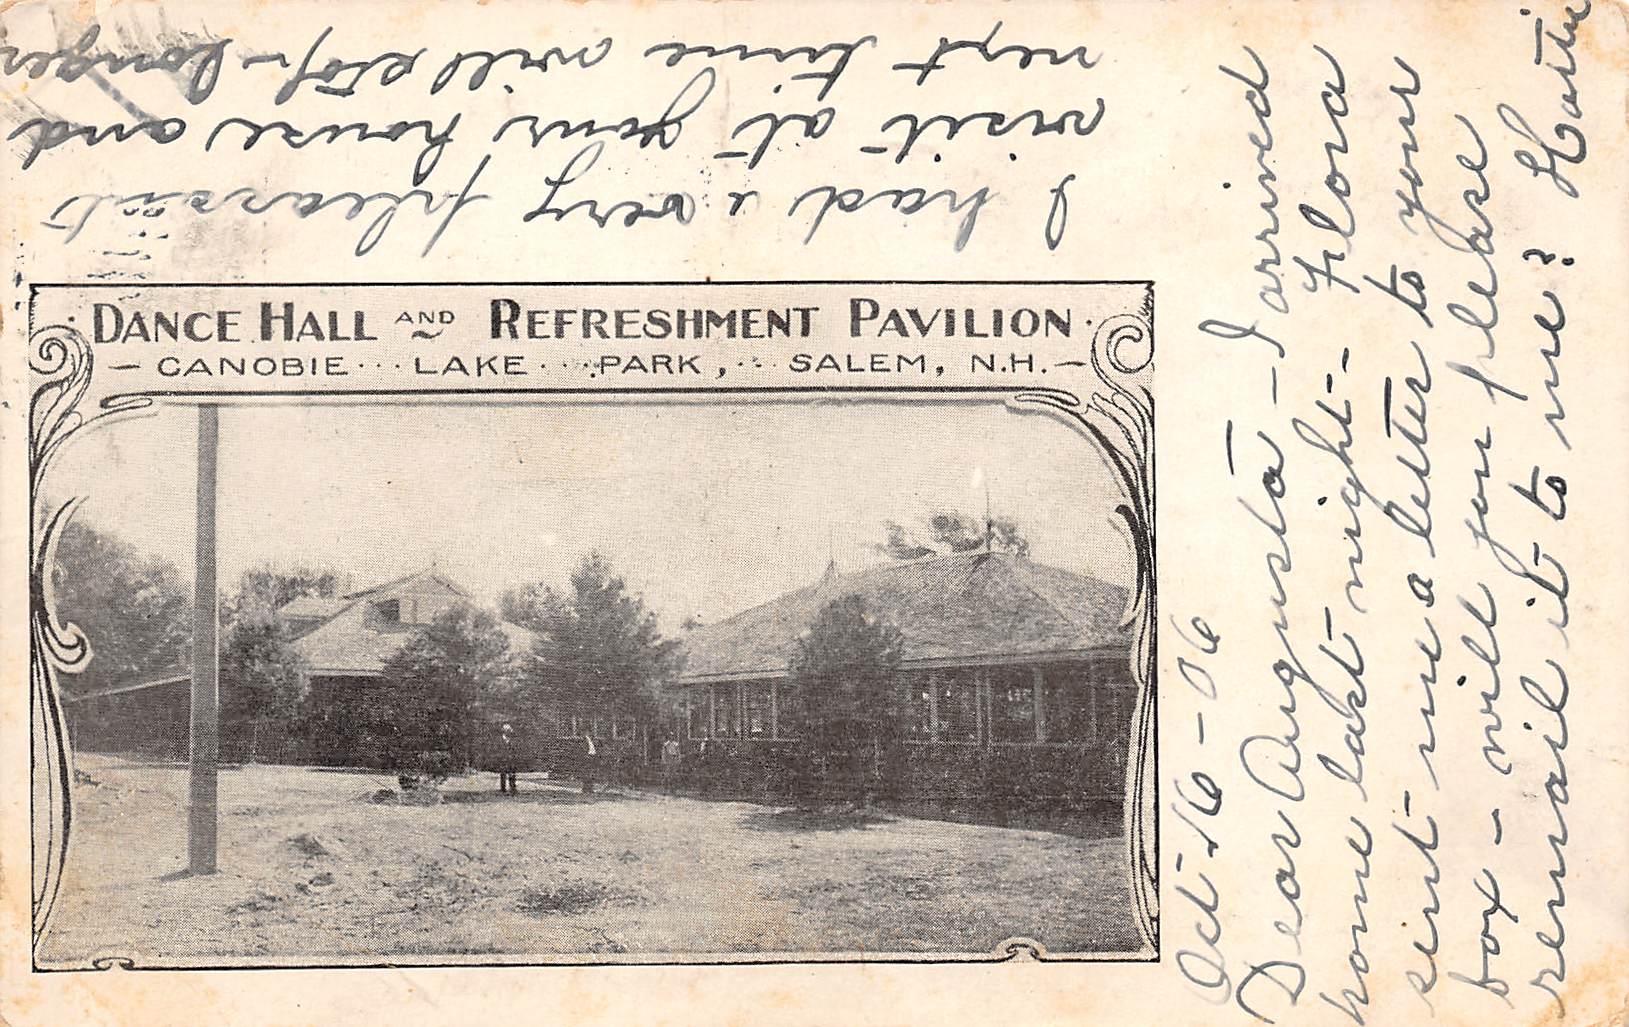 DANCE HALL AND REFRESHMENT PAVILION
CANOBIE LAKE PARK, SALEM, N.H.
Oct-16-06
Dear Augusta-I arrived
home last night- Flora
sent me a letter to your
box-will you please
remail it to me? Hattie
I had a very pleasant
visit at your house and
next time will stop longer